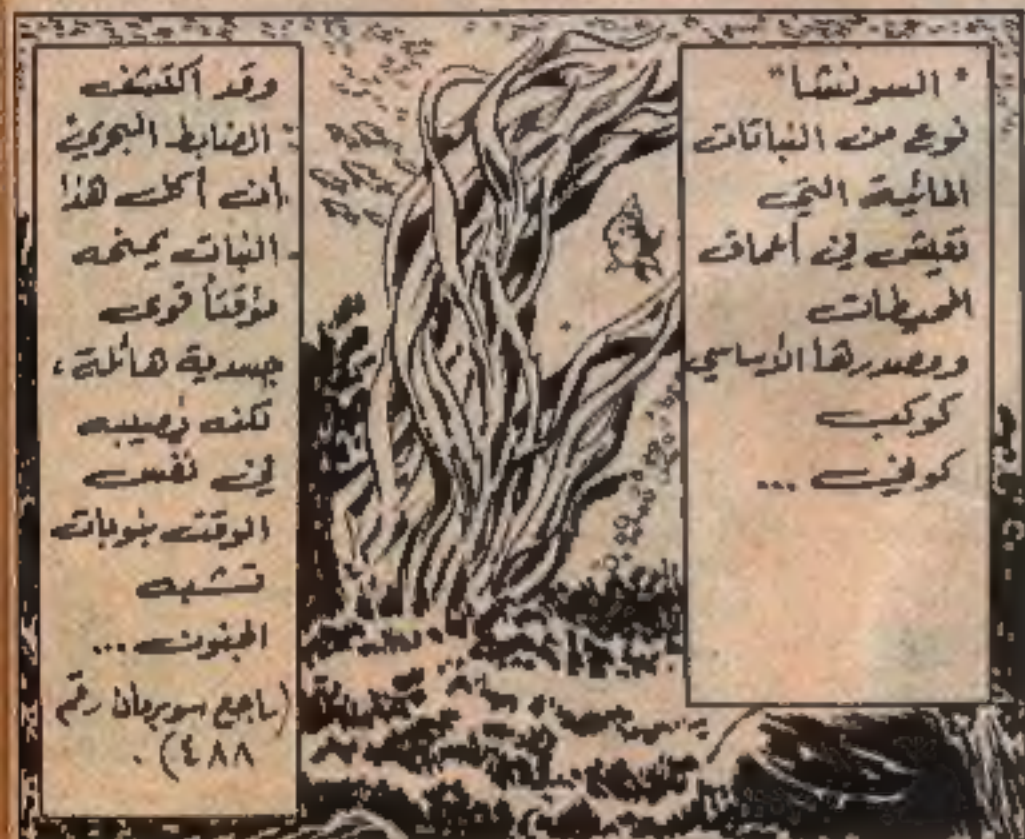 " السونشا "
نوع من النباتات
المائية التي
تعيش في أعماق
المحيطات
ومصدرها الأساسي
كوكب
كوني ...
وقد اكتشف
الضابط البحري
أن أكل هذا
النبات يمنحه
مؤقتاً قوى
جسدية هائلة ،
لكنه يصيبه
في نفس
الوقت بنوبات
تشبه
الجنون ...
(راجع سوبرمان رقم
٤٨٨) .